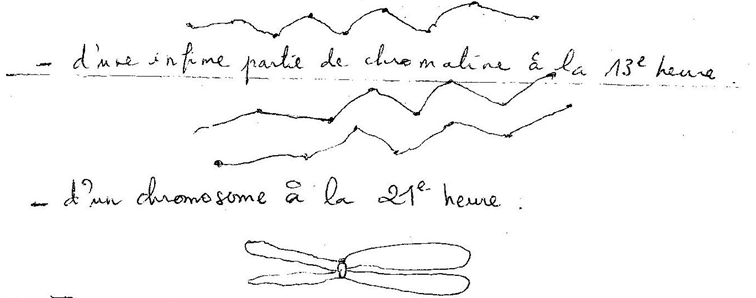 - d'une infime partie de chromatine à la 13e heure.
- d'un chromosome à la 21e heure.